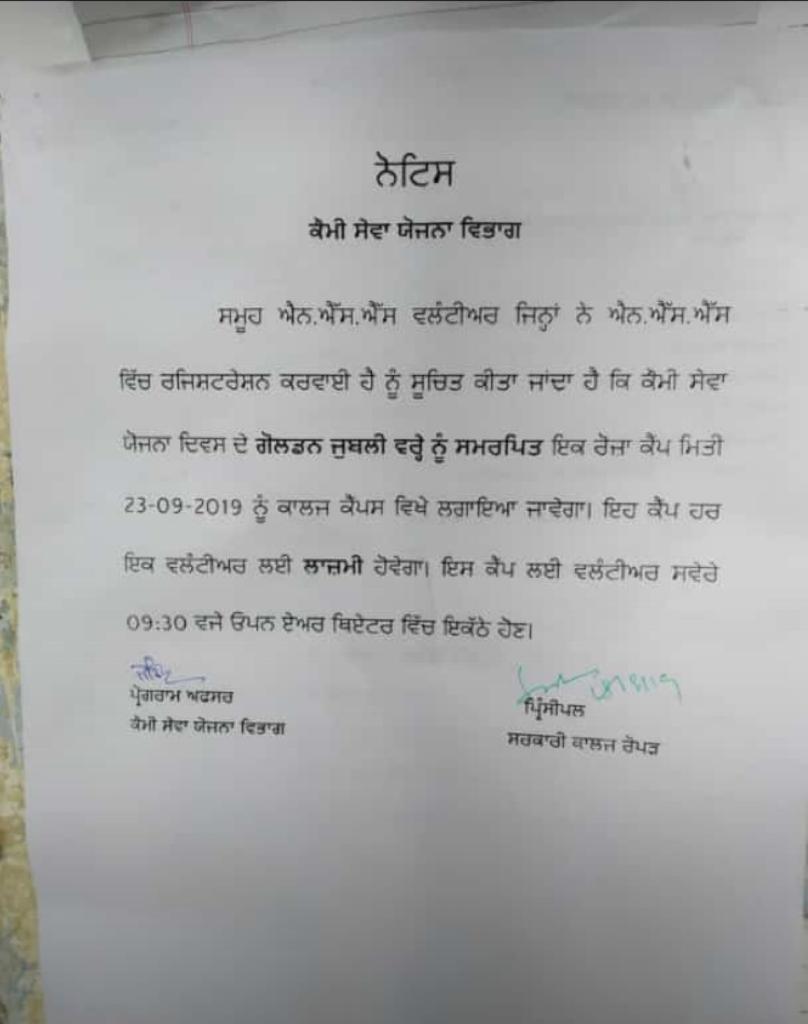 ਨੋਟਿਸ
ਕੌਮੀ ਸੇਵਾ ਯੋਜਨਾ ਵਿਭਾਗ
ਸਮੂਹ ਐਨ.ਐੱਸ.ਐੱਸ ਵਲੰਟੀਅਰ ਜਿਨ੍ਹਾਂ ਨੇ ਐਨ.ਐੱਸ.ਐੱਸ
ਵਿੱਚ ਰਜਿਸ਼ਟਰੇਸ਼ਨ ਕਰਵਾਈ ਹੈ ਨੂੰ ਸੂਚਿਤ ਕੀਤਾ ਜਾਂਦਾ ਹੈ ਕਿ ਕੌਮੀ ਸੇਵਾ
ਯੋਜਨਾ ਦਿਵਸ ਦੇ ਗੋਲਡਨ ਜੁਬਲੀ ਵਰ੍ਹੇ ਨੂੰ ਸਮਰਪਿਤ ਇਕ ਰੋਜ਼ਾ ਕੈਂਪ ਮਿਤੀ
23-09-2019 ਨੂੰ ਕਾਲਜ ਕੈਂਪਸ ਵਿਖੇ ਲਗਾਇਆ ਜਾਵੇਗਾ। ਇਹ ਕੈਂਪ ਹਰ
ਇਕ ਵਲੰਟੀਅਰ ਲਈ ਲਾਜ਼ਮੀ ਹੋਵੇਗਾ। ਇਸ ਕੈਂਪ ਲਈ ਵਲੰਟੀਅਰ ਸਵੇਰੇ
09:30 ਵਜੇ ਓਪਨ ਏਅਰ ਥਿਏਟਰ ਵਿੱਚ ਇਕੱਠੇ ਹੋਣ।
ਪ੍ਰੋਗਰਾਮ ਅਫਸਰ
ਕੌਮੀ ਸੇਵਾ ਯੋਜਨਾ ਵਿਭਾਗ
ਪ੍ਰਿੰਸੀਪਲ
ਸਰਕਾਰੀ ਕਾਲਜ ਰੋਪੜ